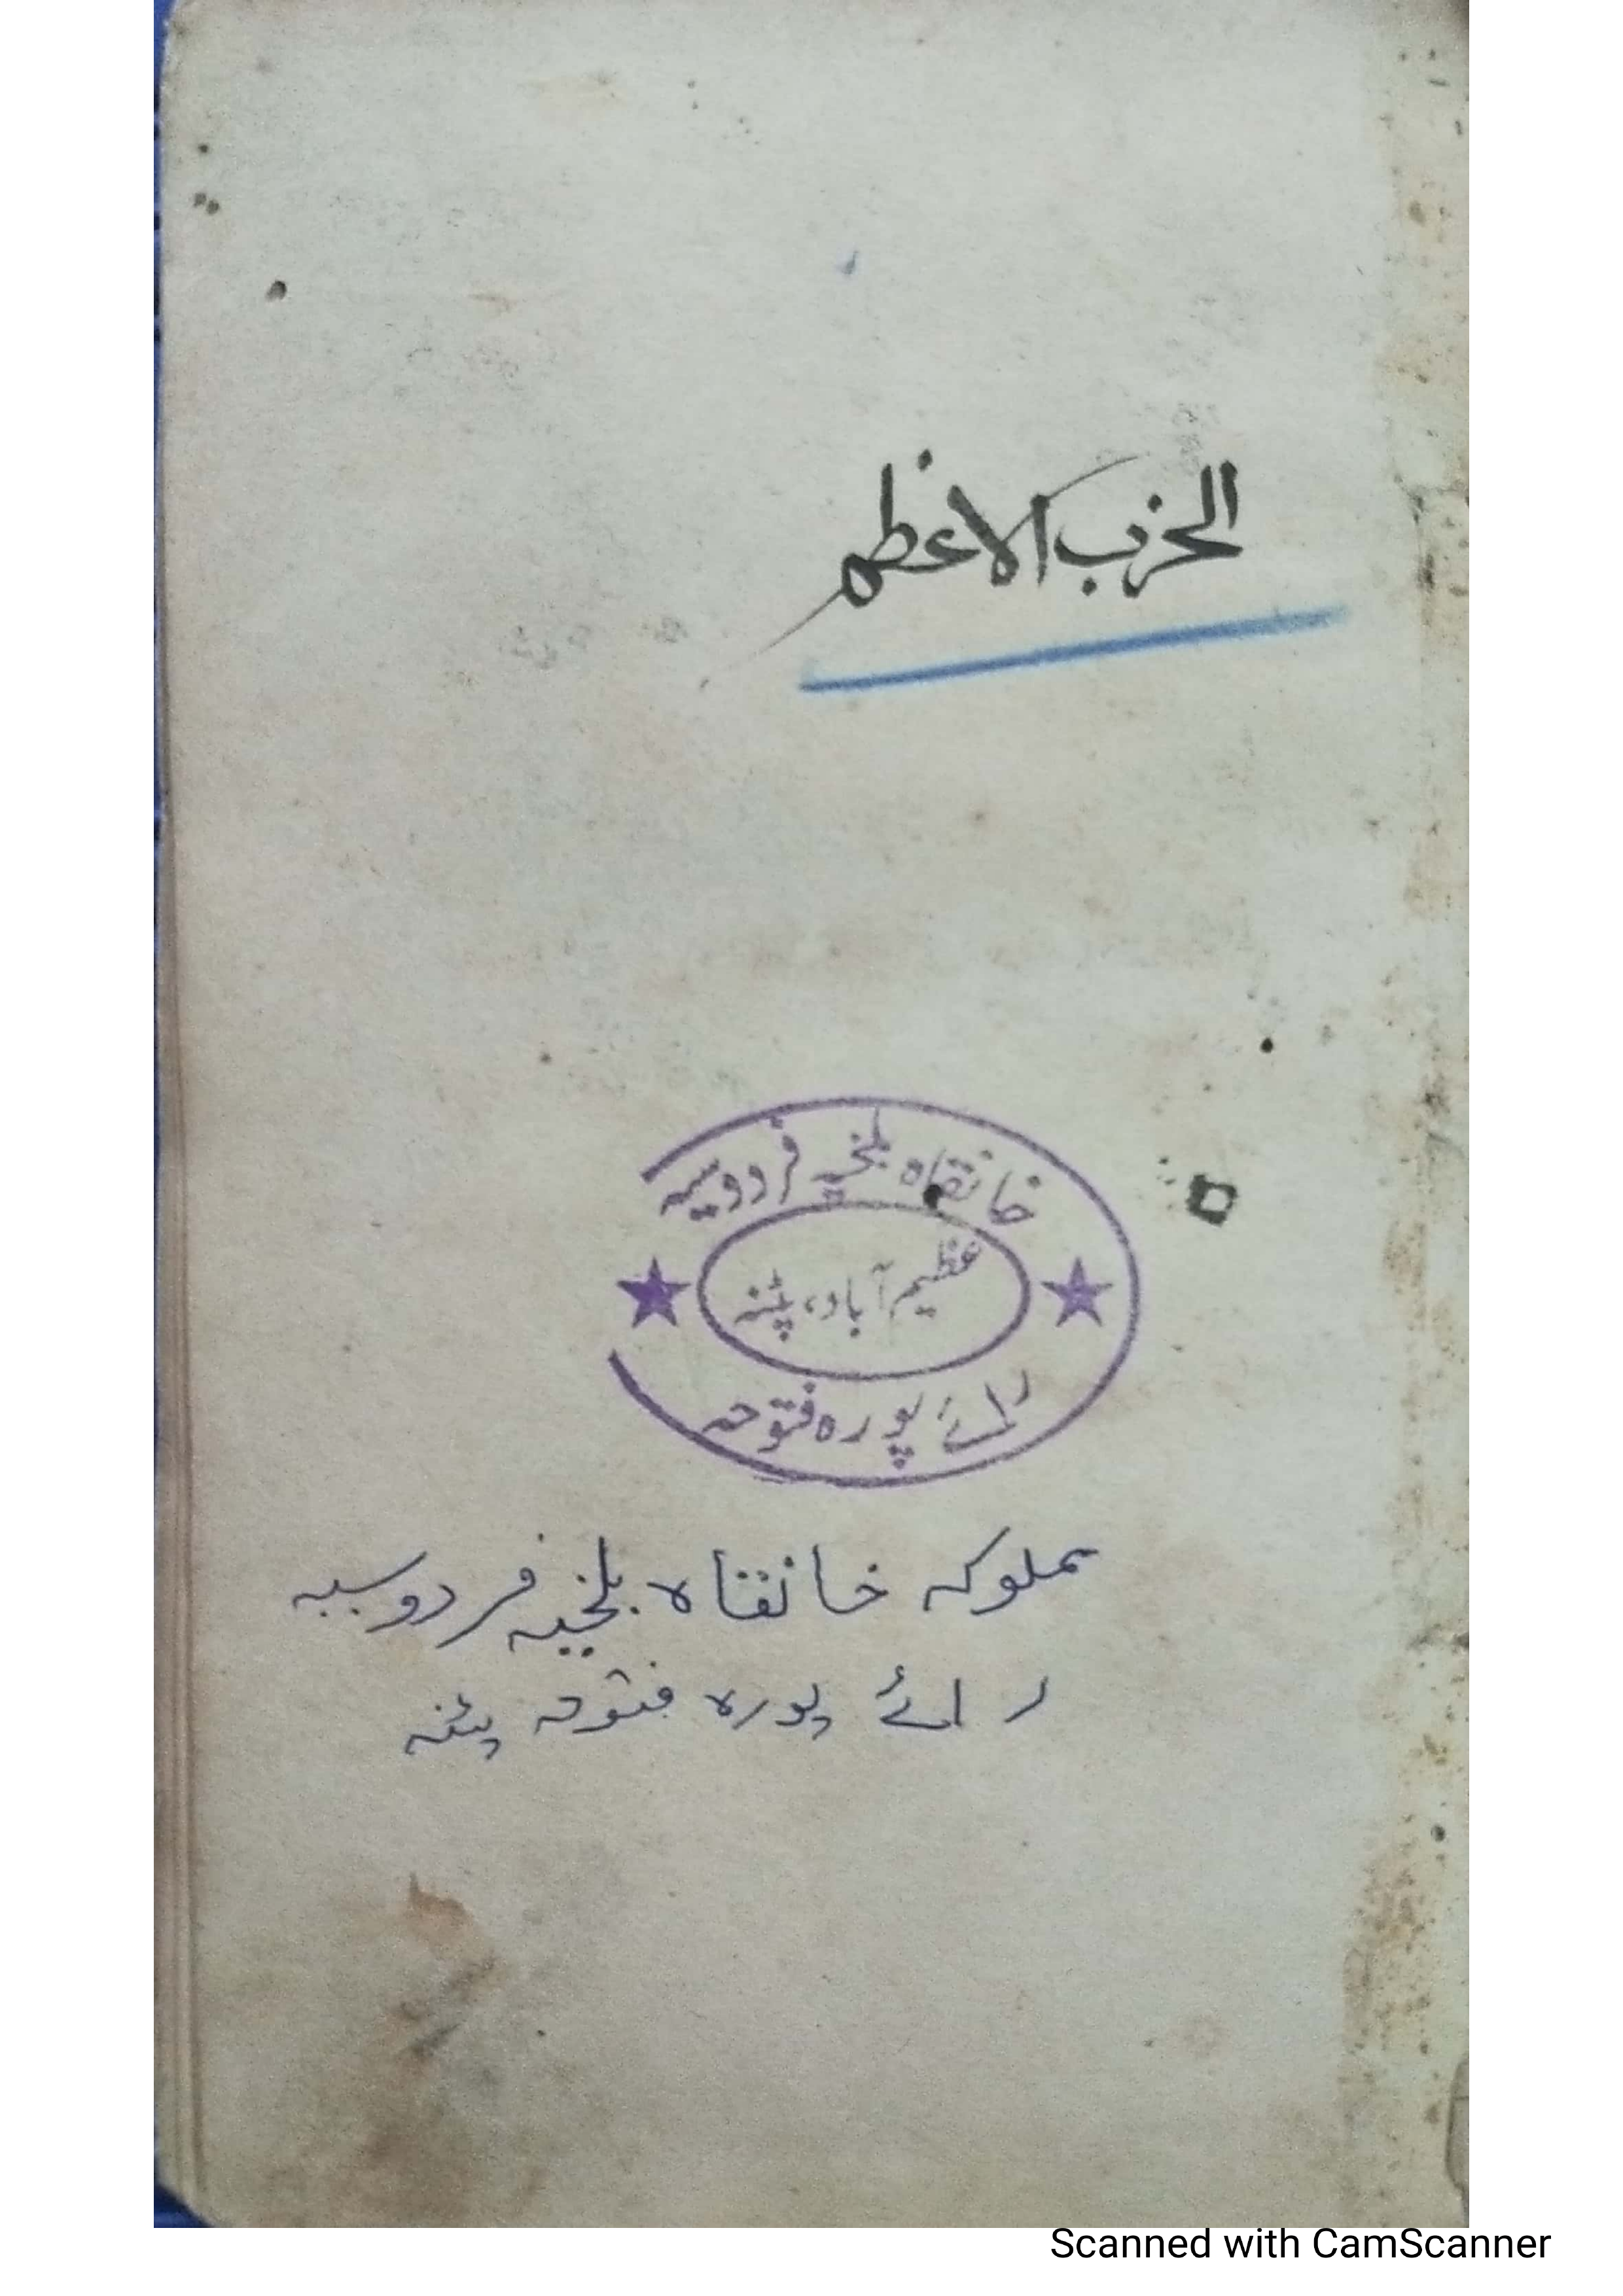 الحزب الاعظم
خانقاہ بلخیہ فردوسیہ
عظیم آباد، پٹنہ
رائے پورہ فتوحہ
مملوکہ خانقاہ بلخیہ فردوسیہ
رائے پورہ فتوحہ پٹنہ
Scanned with CamScanner